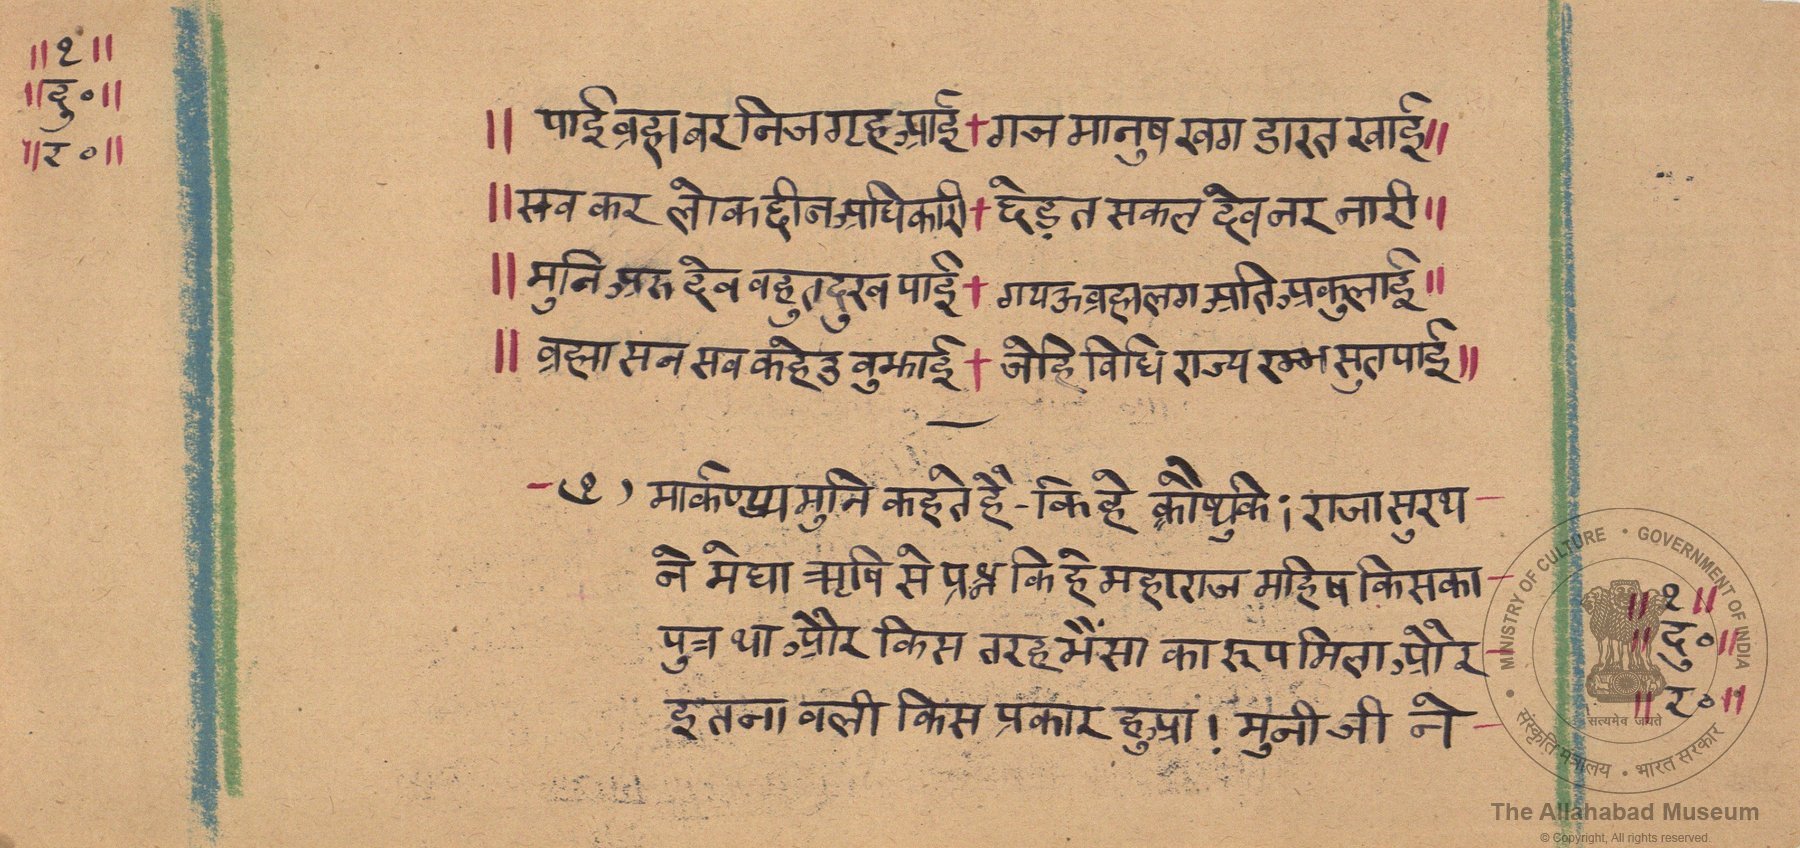 ॥ १ ॥
॥ दु० ॥
॥ र० ॥
॥ पाई व्रह्म वर निज गृह आई + गज मानुष खग डारत खाई ॥
॥ सव कर लोक छीन अधिकारी + छेड़त सकल देव नर नारी ॥
॥ मुनि अरु देव वहुत दुख पाई + गयऊ व्रह्म लग अति अकुलाई ॥
॥ व्रह्मा सन सव कहेउ वुझाई + जेहि विधि राज्य रम्भ सुत पाई ॥
- १) मार्कण्डय मुनि कहते है - कि हे क्रौष्युकि ; राजा सुरथ -
ने मेघा ऋषि से प्रश्न कि हे महाराज महिष किसका -
पुत्र था और किस तरह भैंसा का रूप मिला और -
इतना वली किस प्रकार हुआ ! मुनी जी ने -
॥ १ ॥
॥ दु० ॥
॥ र० ॥
MINISTRY OF CULTURE • GOVERNMENT OF INDIA
सत्यमेव जयते
संस्कृति मंत्रालय • भारत सरकार
The Allahabad Museum
© Copyright, All rights reserved.